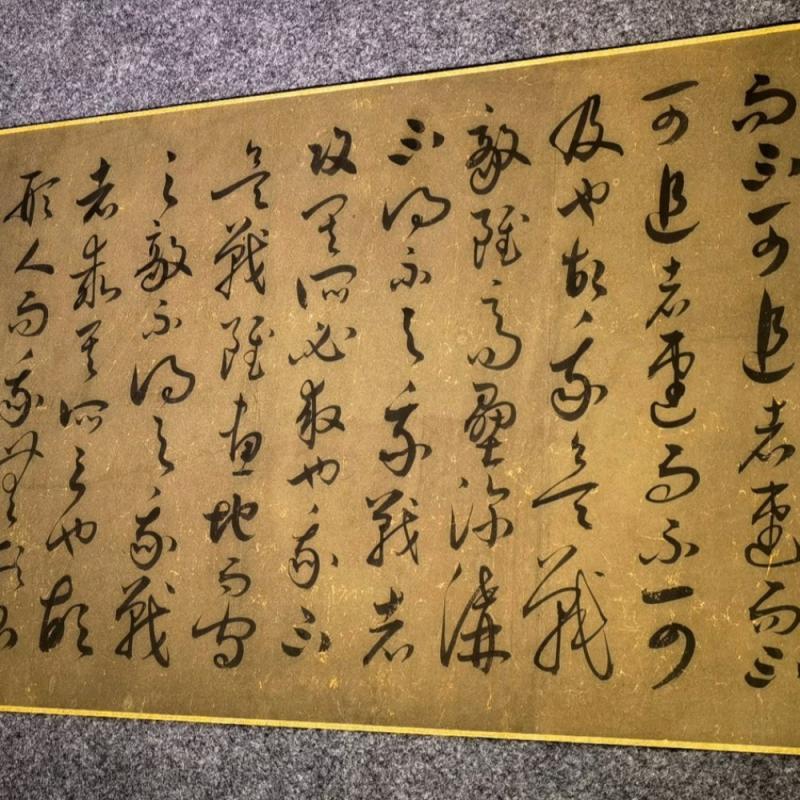 而不可追者速而不
可追者速而不可
及也故我欲戰
敵雖高壘深溝
不得不与我戰者
攻其所必救也我不
欲戰雖畫地而守
之敵不得与我戰
者乖其所之也故
形人而我無形